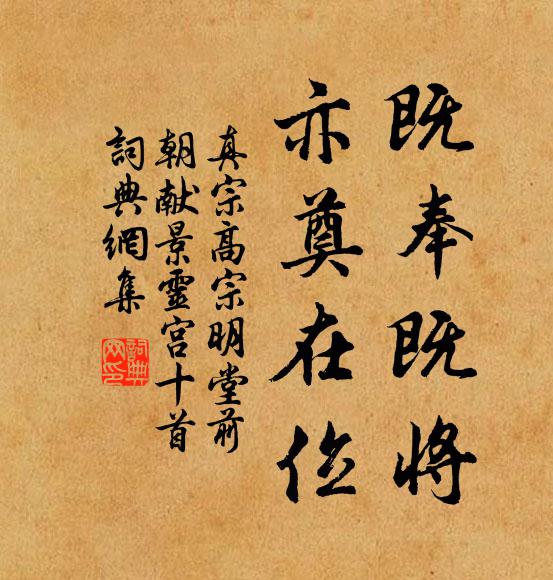 既奉既将
亦奠在位
真宗高宗明堂前
朝献景靈宫十首
詞典網集
詞典網印